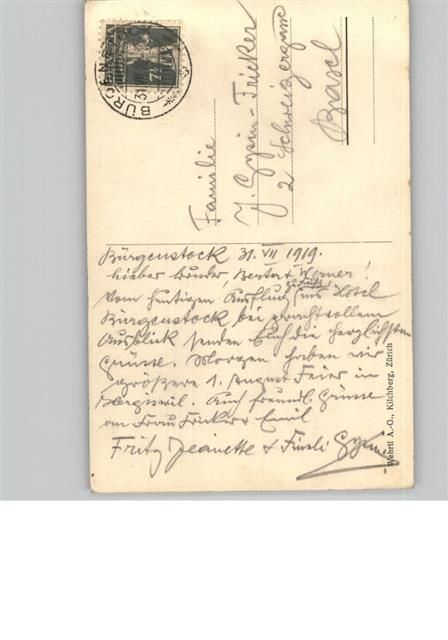 BÜRGENSTOCK
7½
Familie
J. Gysin-Fricker
2 Schweizergasse
Basel
Bürgenstock 31. VII 1919.
Lieber Bruder Berta & Werner!
Vom heutigen Ausflug ins Hotel
Bürgenstock bei prachtvollem
Ausblick senden Euch die herzlichsten
Grüsse. Morgen haben wir
grössere 1. August Feier in
Hergiswil. Auch freundl. Grüsse
an Frau Fricker & Emil
Fritz Jeanette & Gysin
Wehrli A.-G., Kilchberg, Zürich